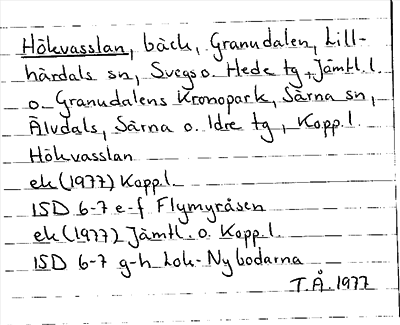 Hökvasslan, bäck, Granudalen, Lill-
härdals sn, Svegs o. Hede tg, Jämtl. l.
o. Granudalens Kronopark, Särna sn,
Älvdals, Särna o. Idre tg, Kopp. l.
Hökvasslan
ek (1977) Kopp. l.
ISD 6-7 e-f Flymyråsen
ek (1977) Jämtl. o. Kopp. l.
ISD 6-7 g-h Lok-Nybodarna
T.Å. 1977